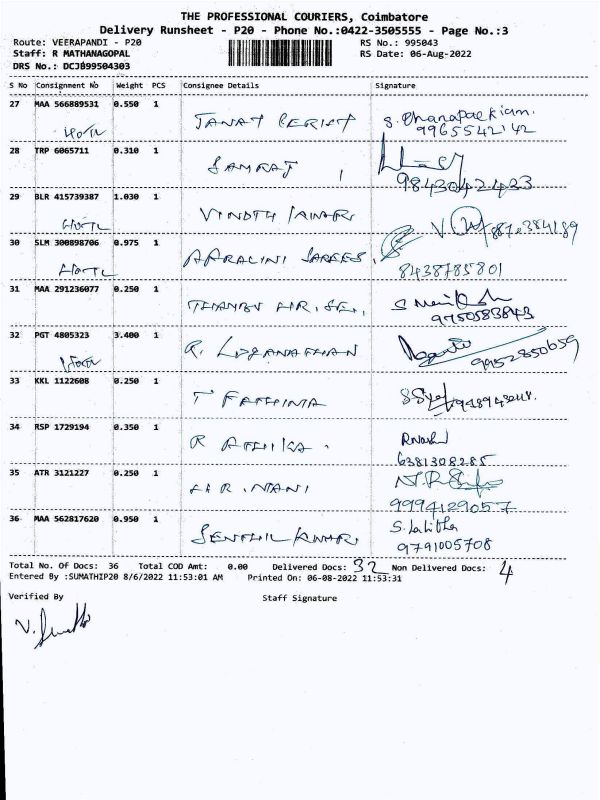 THE PROFESSIONAL COURIERS, Coimbatore
Delivery Runsheet - P20 - Phone No.:0422-3505555 - Page No.:3
Route: VEERAPANDI - P20 RS No.: 995043
Staff: R MATHANAGOPAL RS Date: 06-Aug-2022
DRS No.: DCJB99504303
S No Consignment No Weight PCS Consignee Details Signature
27 MAA 566889531 0.550 1
S. Dhanapackiam.
9965542142
28 TRP 6065711 0.310 1
9843042423
29 BLR 415739387 1.030 1
VINOTH KUMAR
30 SLM 300898706 0.975 1
8438785801
31 MAA 291236077 0.250 1
9750583843
32 PGT 4805323 3.400 1
R. LOGANATHAN
9952850659
33 KKL 1122608 0.250 1
T FATHIMA
34 RSP 1729194 0.350 1
R
6381308285
35 ATR 3121227 0.250 1
9994129057
36 MAA 562817620 0.950 1
SENTHIL KUMAR
S. Lalitha
9791005708
Total No. Of Docs: 36 Total COD Amt: 0.00 Delivered Docs: 32 Non Delivered Docs: 4
Entered By :SUMATHIP20 8/6/2022 11:53:01 AM Printed On: 06-08-2022 11:53:31
Verified By Staff Signature